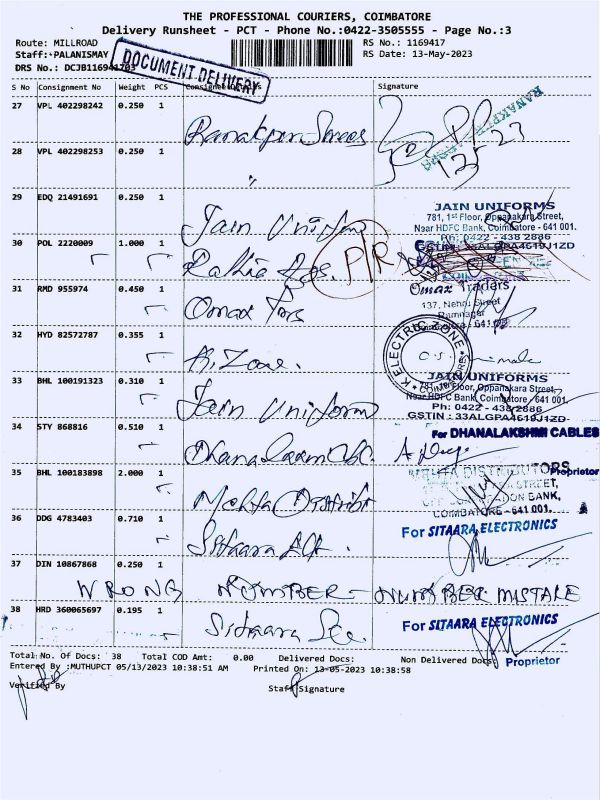 THE PROFESSIONAL COURIERS, COIMBATORE
Delivery Runsheet - PCT - Phone No.:0422-3505555 - Page No.:3
Route: MILLROAD
RS No.: 1169417
Staff: PALANISMAY
RS Date: 13-May-2023
DRS No.: DCJB116941703
DOCUMENT DELIVERY
S No Consignment No Weight PCS Consignee Details Signature
27 VPL 402298242 0.250 1 Ranakpur Shrees
RANAKPUR
28 VPL 402298253 0.250 1 "
29 EDQ 21491691 0.250 1 Jain Uniform
JAIN UNIFORMS
781, 1st Floor, Oppanakara Street,
Near HDFC Bank, Coimbatore - 641 001.
Ph: 0422 - 438 2886
GSTIN : 33ALGPA4619J1ZD
30 POL 2220009 1.000 1
P/R
31 RMD 955974 0.450 1 Omax
Omax Traders
137, Nehru Street
Ramnagar
Coimbatore - 641 009
32 HYD 82572787 0.355 1 K. Zone.
K ELECTRIC ZONE
COIMBATORE
33 BHL 100191323 0.310 1 Jain Uniform
JAIN UNIFORMS
781, 1st Floor, Oppanakara Street,
Near HDFC Bank, Coimbatore - 641 001.
Ph: 0422 - 438 2886
GSTIN : 33ALGPA4619J1ZD
34 STY 868816 0.510 1
For DHANALAKSHMI CABLES
Proprietor
35 BHL 100183898 2.000 1 Mehta Distribut
MEHTA DISTRIBUTORS
STREET,
BANK,
COIMBATORE - 641 001.
36 DDG 4783403 0.710 1 Sitaara
For SITAARA ELECTRONICS
37 DIN 10867868 0.250 1
WRONG NUMBER - NUMBER MISTAKE
38 HRD 360065697 0.195 1 Sitaara
For SITAARA ELECTRONICS
Proprietor
Total No. Of Docs: 38 Total COD Amt: 0.00 Delivered Docs: Non Delivered Docs:
Entered By :MUTHUPCT 05/13/2023 10:38:51 AM Printed On: 13-05-2023 10:38:58
Verified By
Staff Signature